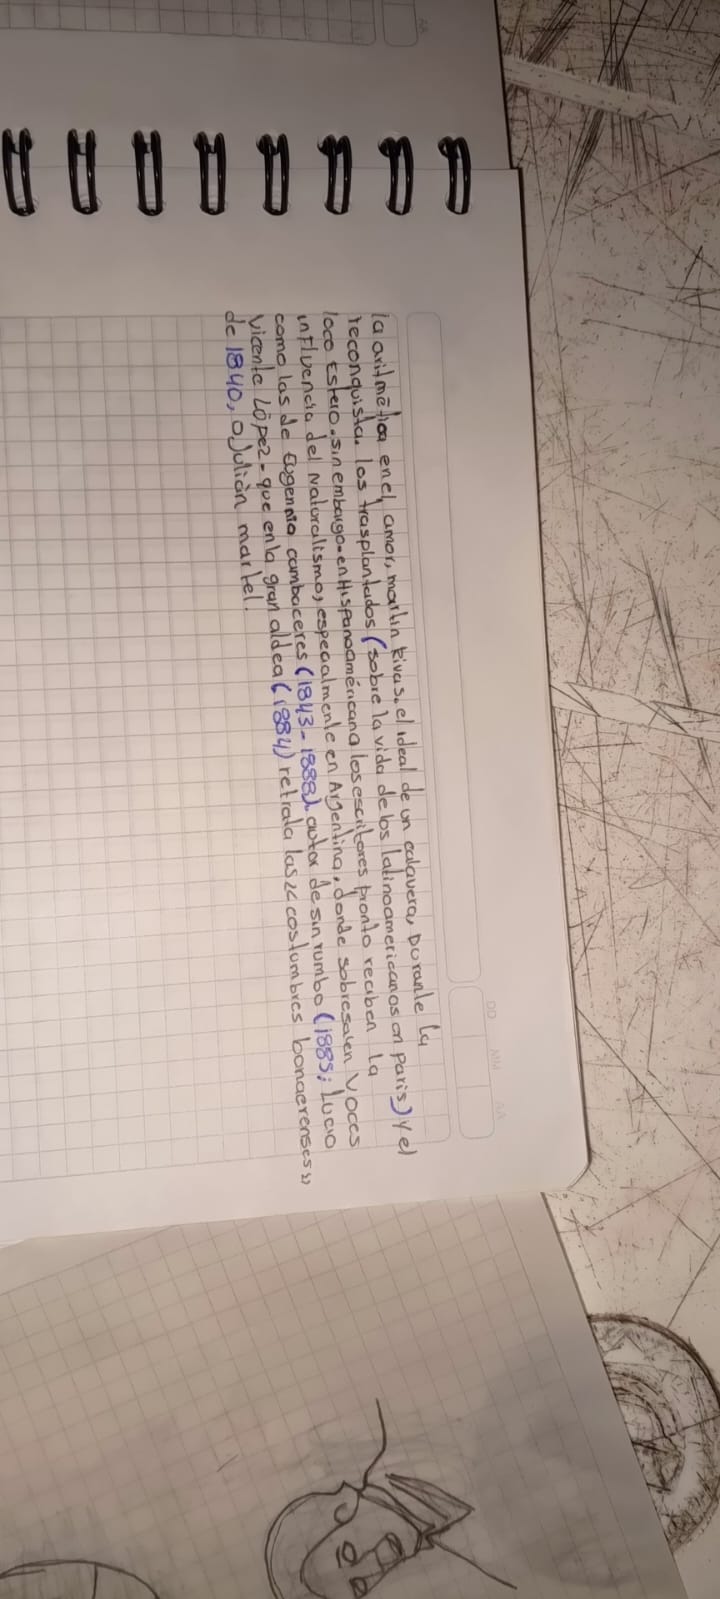 la aritmética en el amor, martin Rivas, el ideal de un calavera, Durante la
reconquista. los trasplantados (sobre la vida de los latinoamericanos en Paris) y el
loco Estero. sin embargo. en Hispanoaméricana los escritores pronto reciben la
influencia del Naturalismo, especialmente en Argentina, donde sobresalen voces
como las de Eugenio cambaceres (1843-1888) autor de sin rumbo (1885; Lucio
Vicente López - que en la gran aldea (1884) retrata las << costumbres bonaerenses >>
de 1840, o Julián martel.
DD MM AA
AA